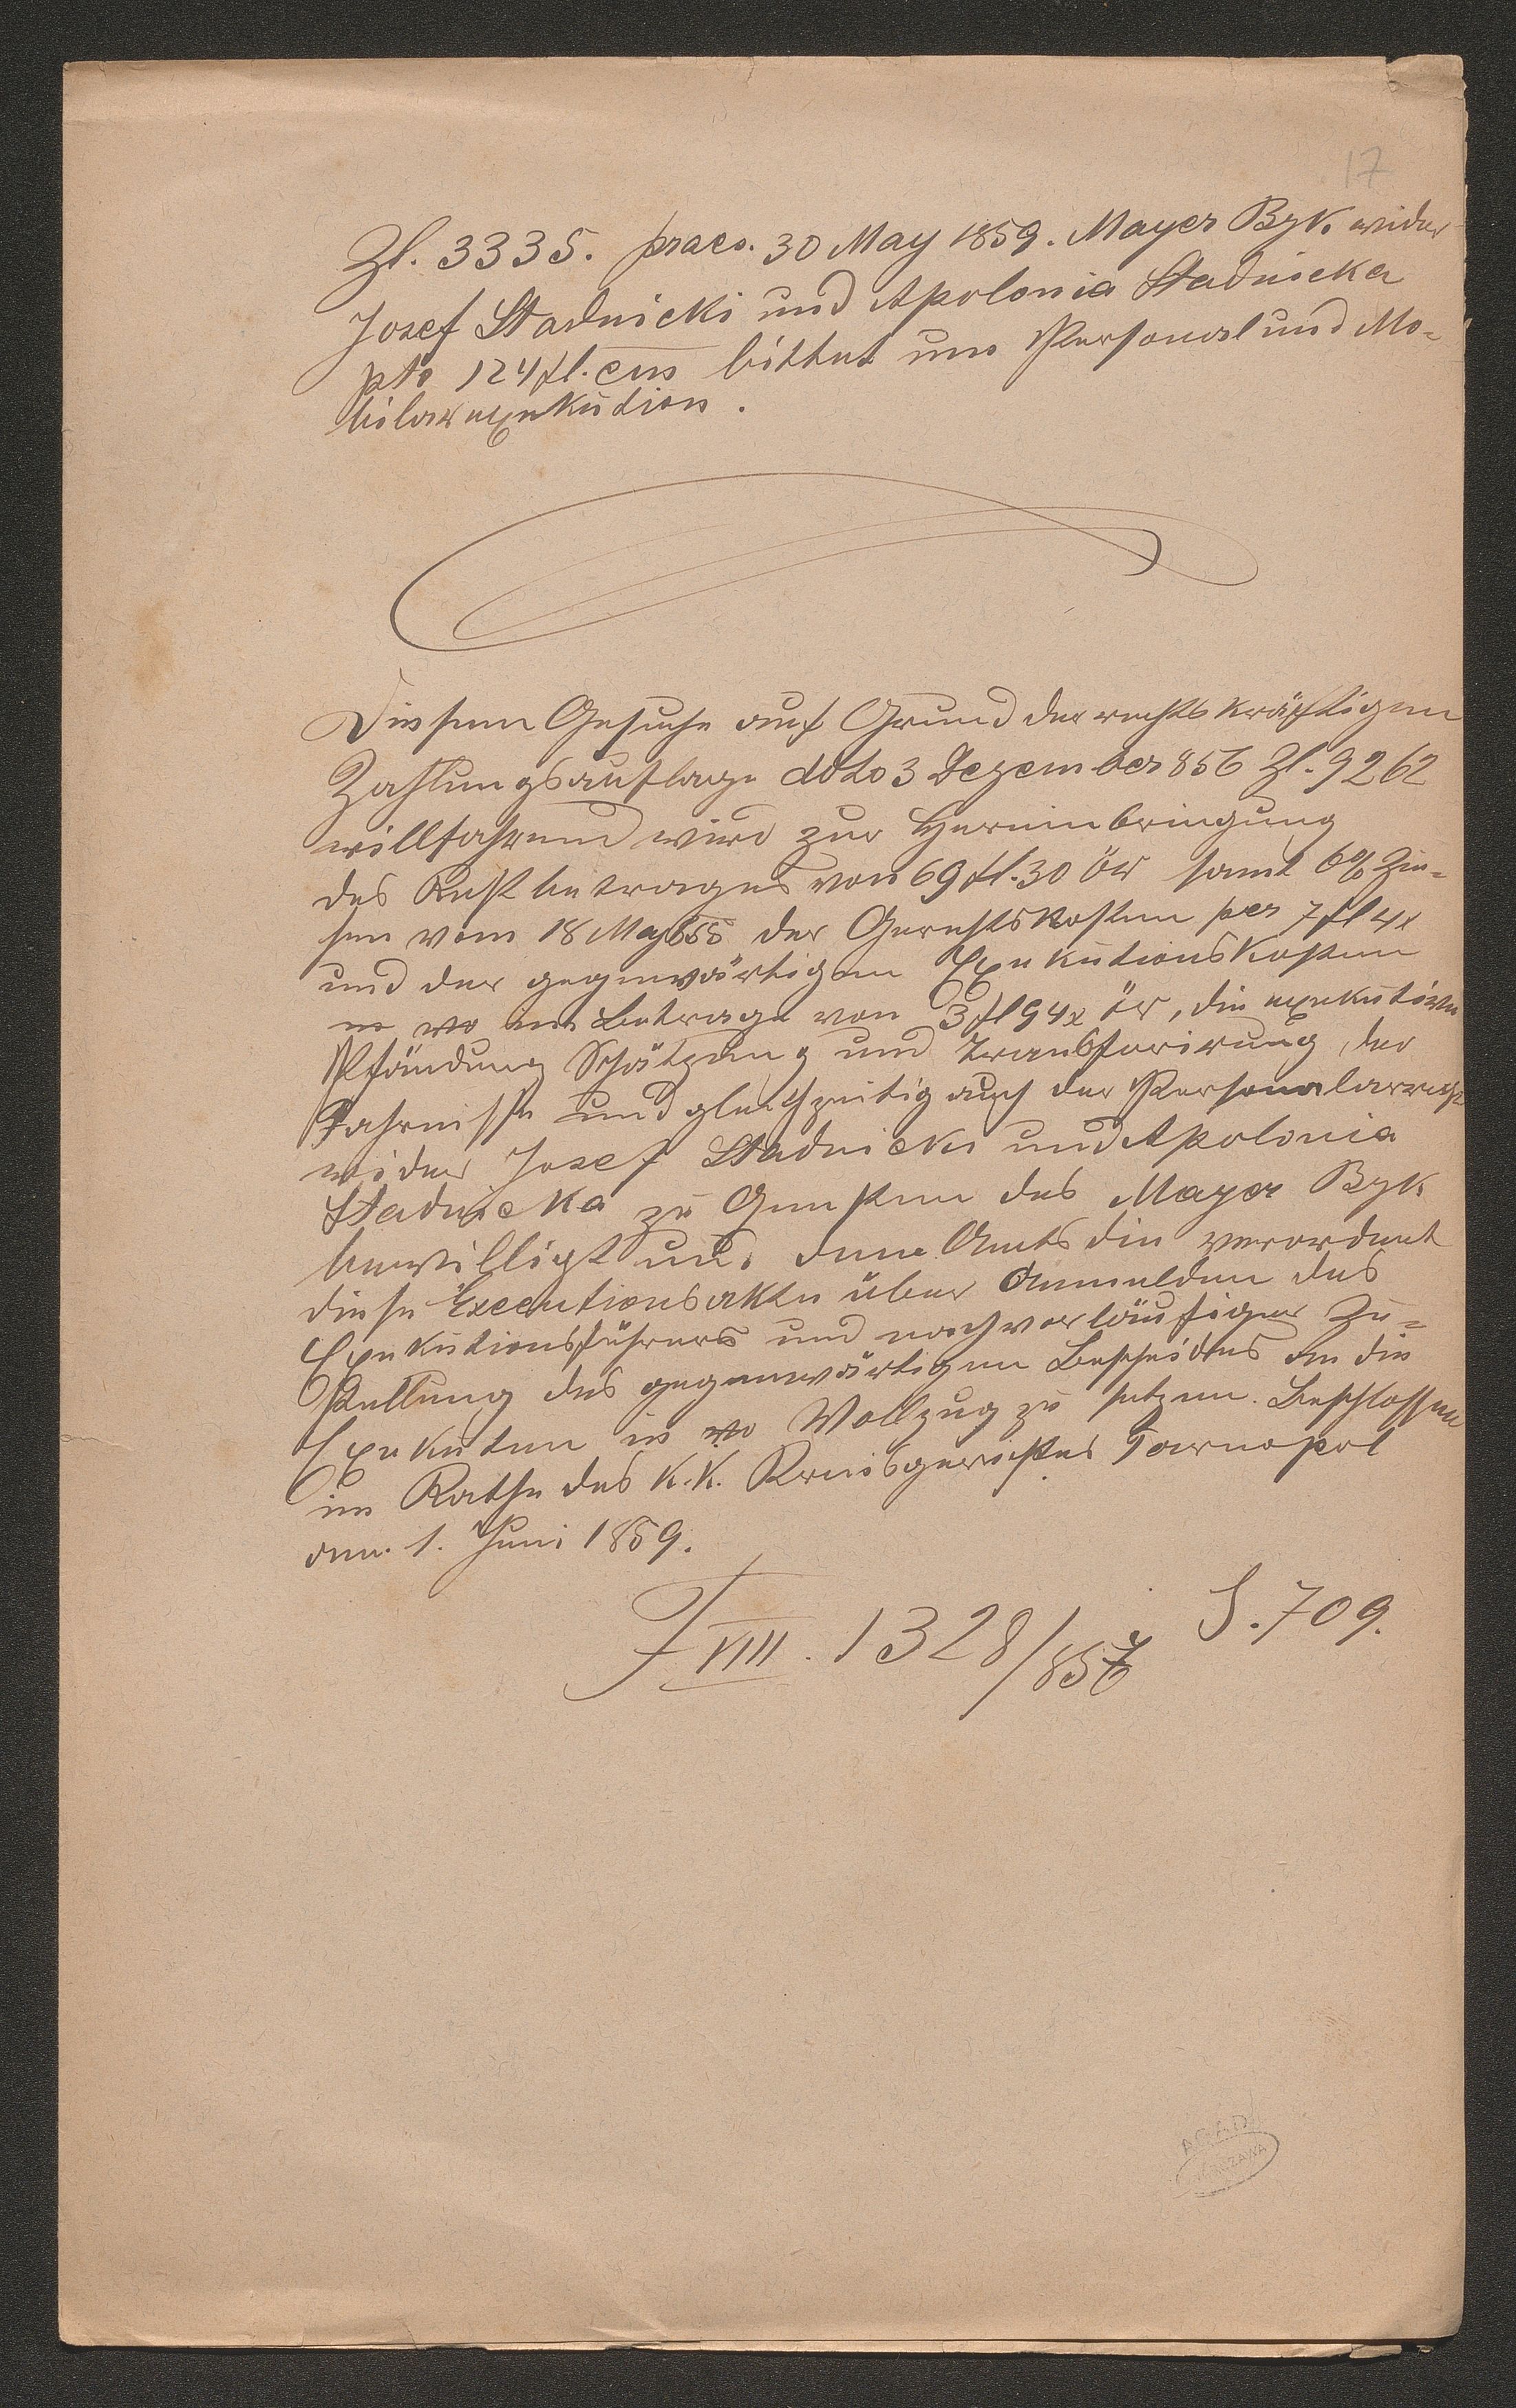 17
Zl. 3335. praes. 30 May 1859. Mayer Byk. wider
Josef Stadnicki und Apolonia Stadnicka
pto 124 fl. cm bittet um Personal und Mo-
bilarexekution.
Diesem Gesuche auf Grund der rechtskräftigen
Zahlungsauflage ddto 3 Dezember 856 Zl. 9262
willfahrend wird zur Hereinbringung
des Restbetrages von 69 fl. 30 öW samt 6% Zin-
sen vom 18 May der Gerichtskosten per 7 fl 4x
und der gegenwärtigen Exekutionskosten
im Betrage von 3 fl 94x öW, die exekutive
Pfändung Schätzung und Transferirung der
Fahrnisse und gleichzeitig auch der Personalarrest
wider Josef Stadnicki und Apolonia
Stadnicka zu Gunsten des Mayer Byk
bewilligt und dem Amtsdin verordnet
diese Executionsakte über Anmelden des
Exekutionsführers und nach vorläufiger Zu-
stellung des gegenwärtigen Bescheides an die
Exekuten in Vollzug zu setzen. Beschlossen
im Rathe des K. K. Kreisgerichtes Tarnopol
am. 1. Juni 1859.
F VIII. 1328/857 S. 709.
AGAD
WARSZAWA